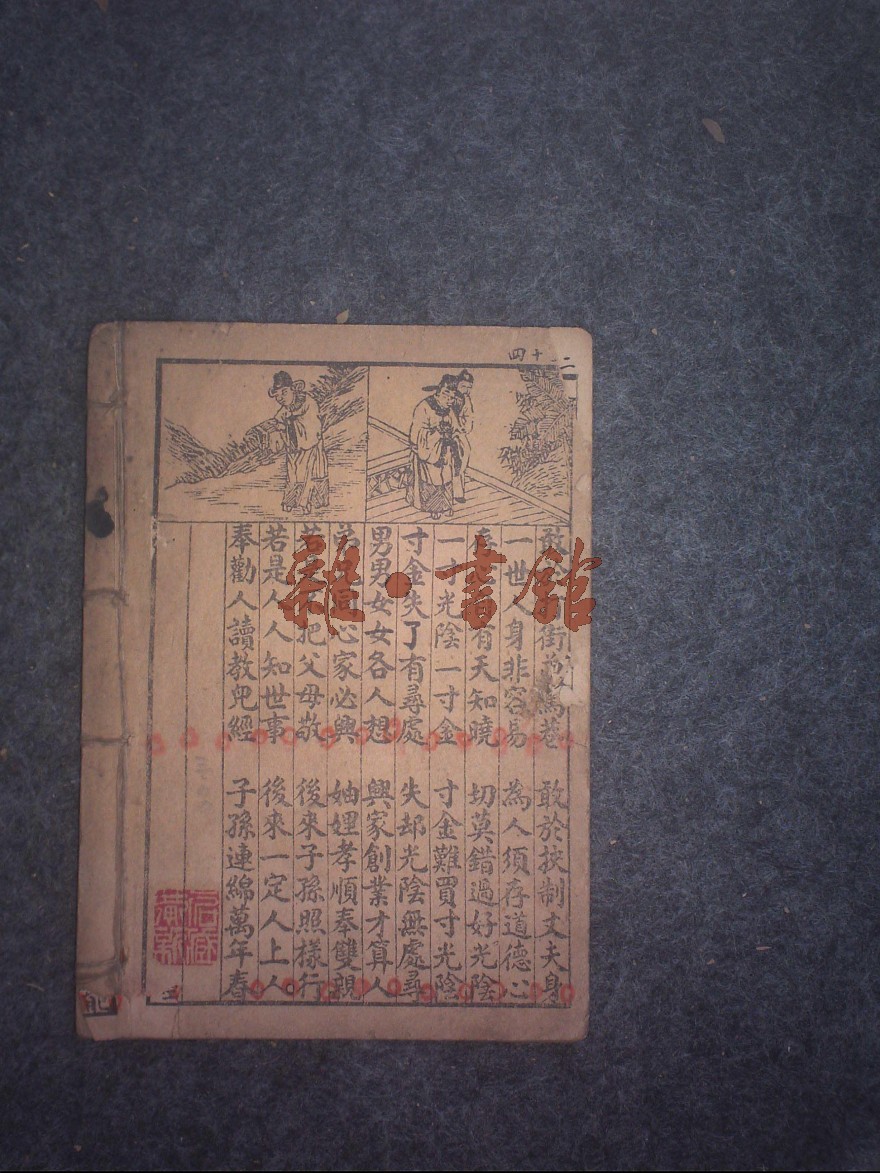 四十二
敢於 街 罵巷 敢於挾制丈夫身
一世人身非容易 為人須存道德心
有天知曉 切莫錯過好光陰
一寸光陰一寸金 寸金難買寸光陰
寸金失了有尋處 失却光陰無處尋
男男女女各人想 興家創業才算人
同心家必興 妯娌孝順奉雙親
若 把父母敬 後來子孫照樣行
若是人人知世事 後來一定人上人
奉勸人讀教兒經 子孫連綿萬年春
雜·書館